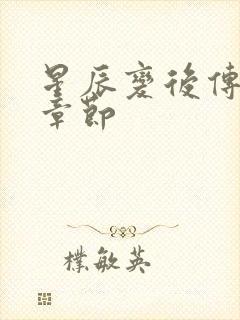 星辰變後傳
章節
樸敏英